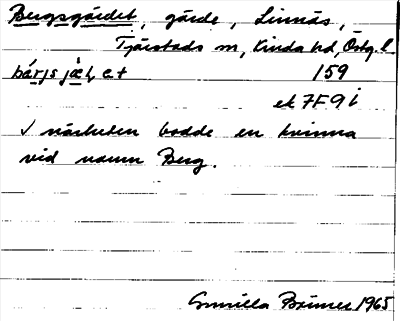 Bergsgärdet, gärde, Linnäs,
Tjärstads sn, Kinda hd, Östg. l.
159
ek 7F9i
I närheten bodde en kvinna
vid namn Berg.
Gunilla Brimer 1965